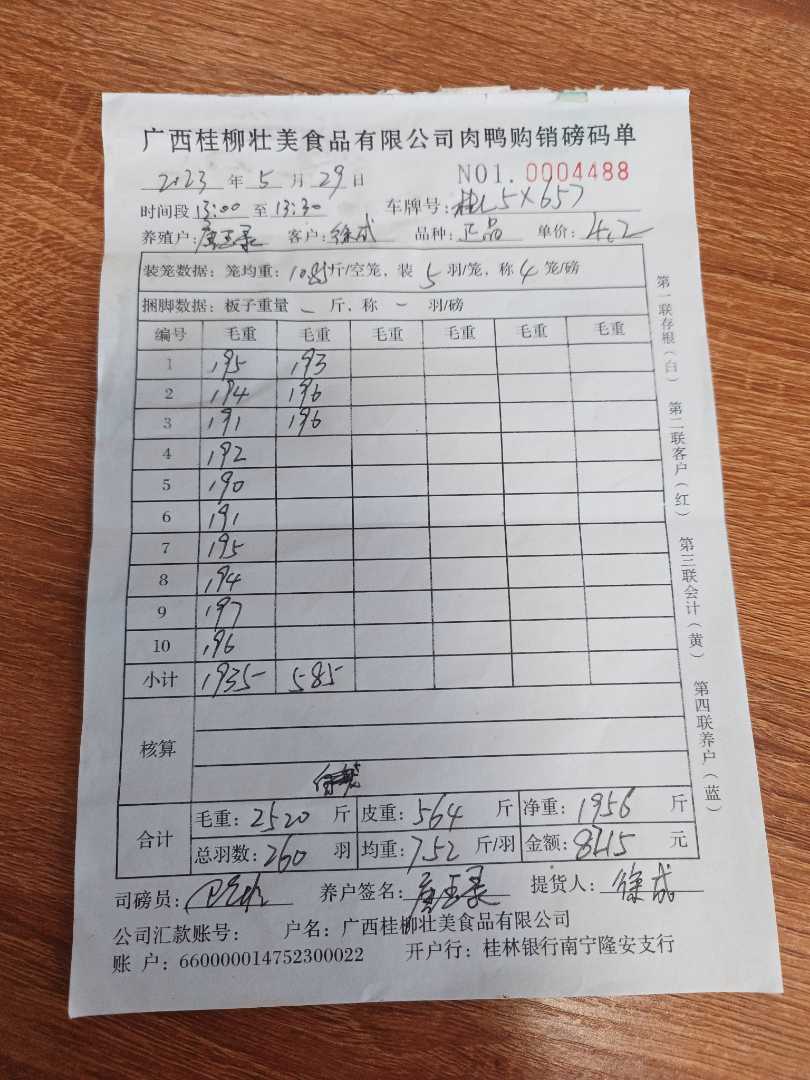 广西桂柳壮美食品有限公司肉鸭购销磅码单
2023 年 5 月 29 日 NO1. 0004488
时间段 13:00 至 13:30 车牌号: 桂L5X657
养殖户: 客户: 徐成 品种: 正品 单价: 4.2
装笼数据: 笼均重: 10.85 斤/空笼, 装 5 羽/笼, 称 4 笼/磅
捆脚数据: 板子重量 — 斤, 称 — 羽/磅
编号 毛重 毛重 毛重 毛重 毛重 毛重
1 195 193
2 194 196
3 191 196
4 192
5 190
6 191
7 195
8 194
9 197
10 196
小计 1935 585
核算
合计 毛重: 2520 斤 皮重: 564 斤 净重: 1956 斤
总羽数: 260 羽 均重: 7.52 斤/羽 金额: 8215 元
司磅员: 养户签名: 提货人: 徐成
公司汇款账号: 户名: 广西桂柳壮美食品有限公司
账 户: 660000014752300022 开户行: 桂林银行南宁隆安支行
第一联存根(白) 第二联客户(红) 第三联会计(黄) 第四联养户(蓝)